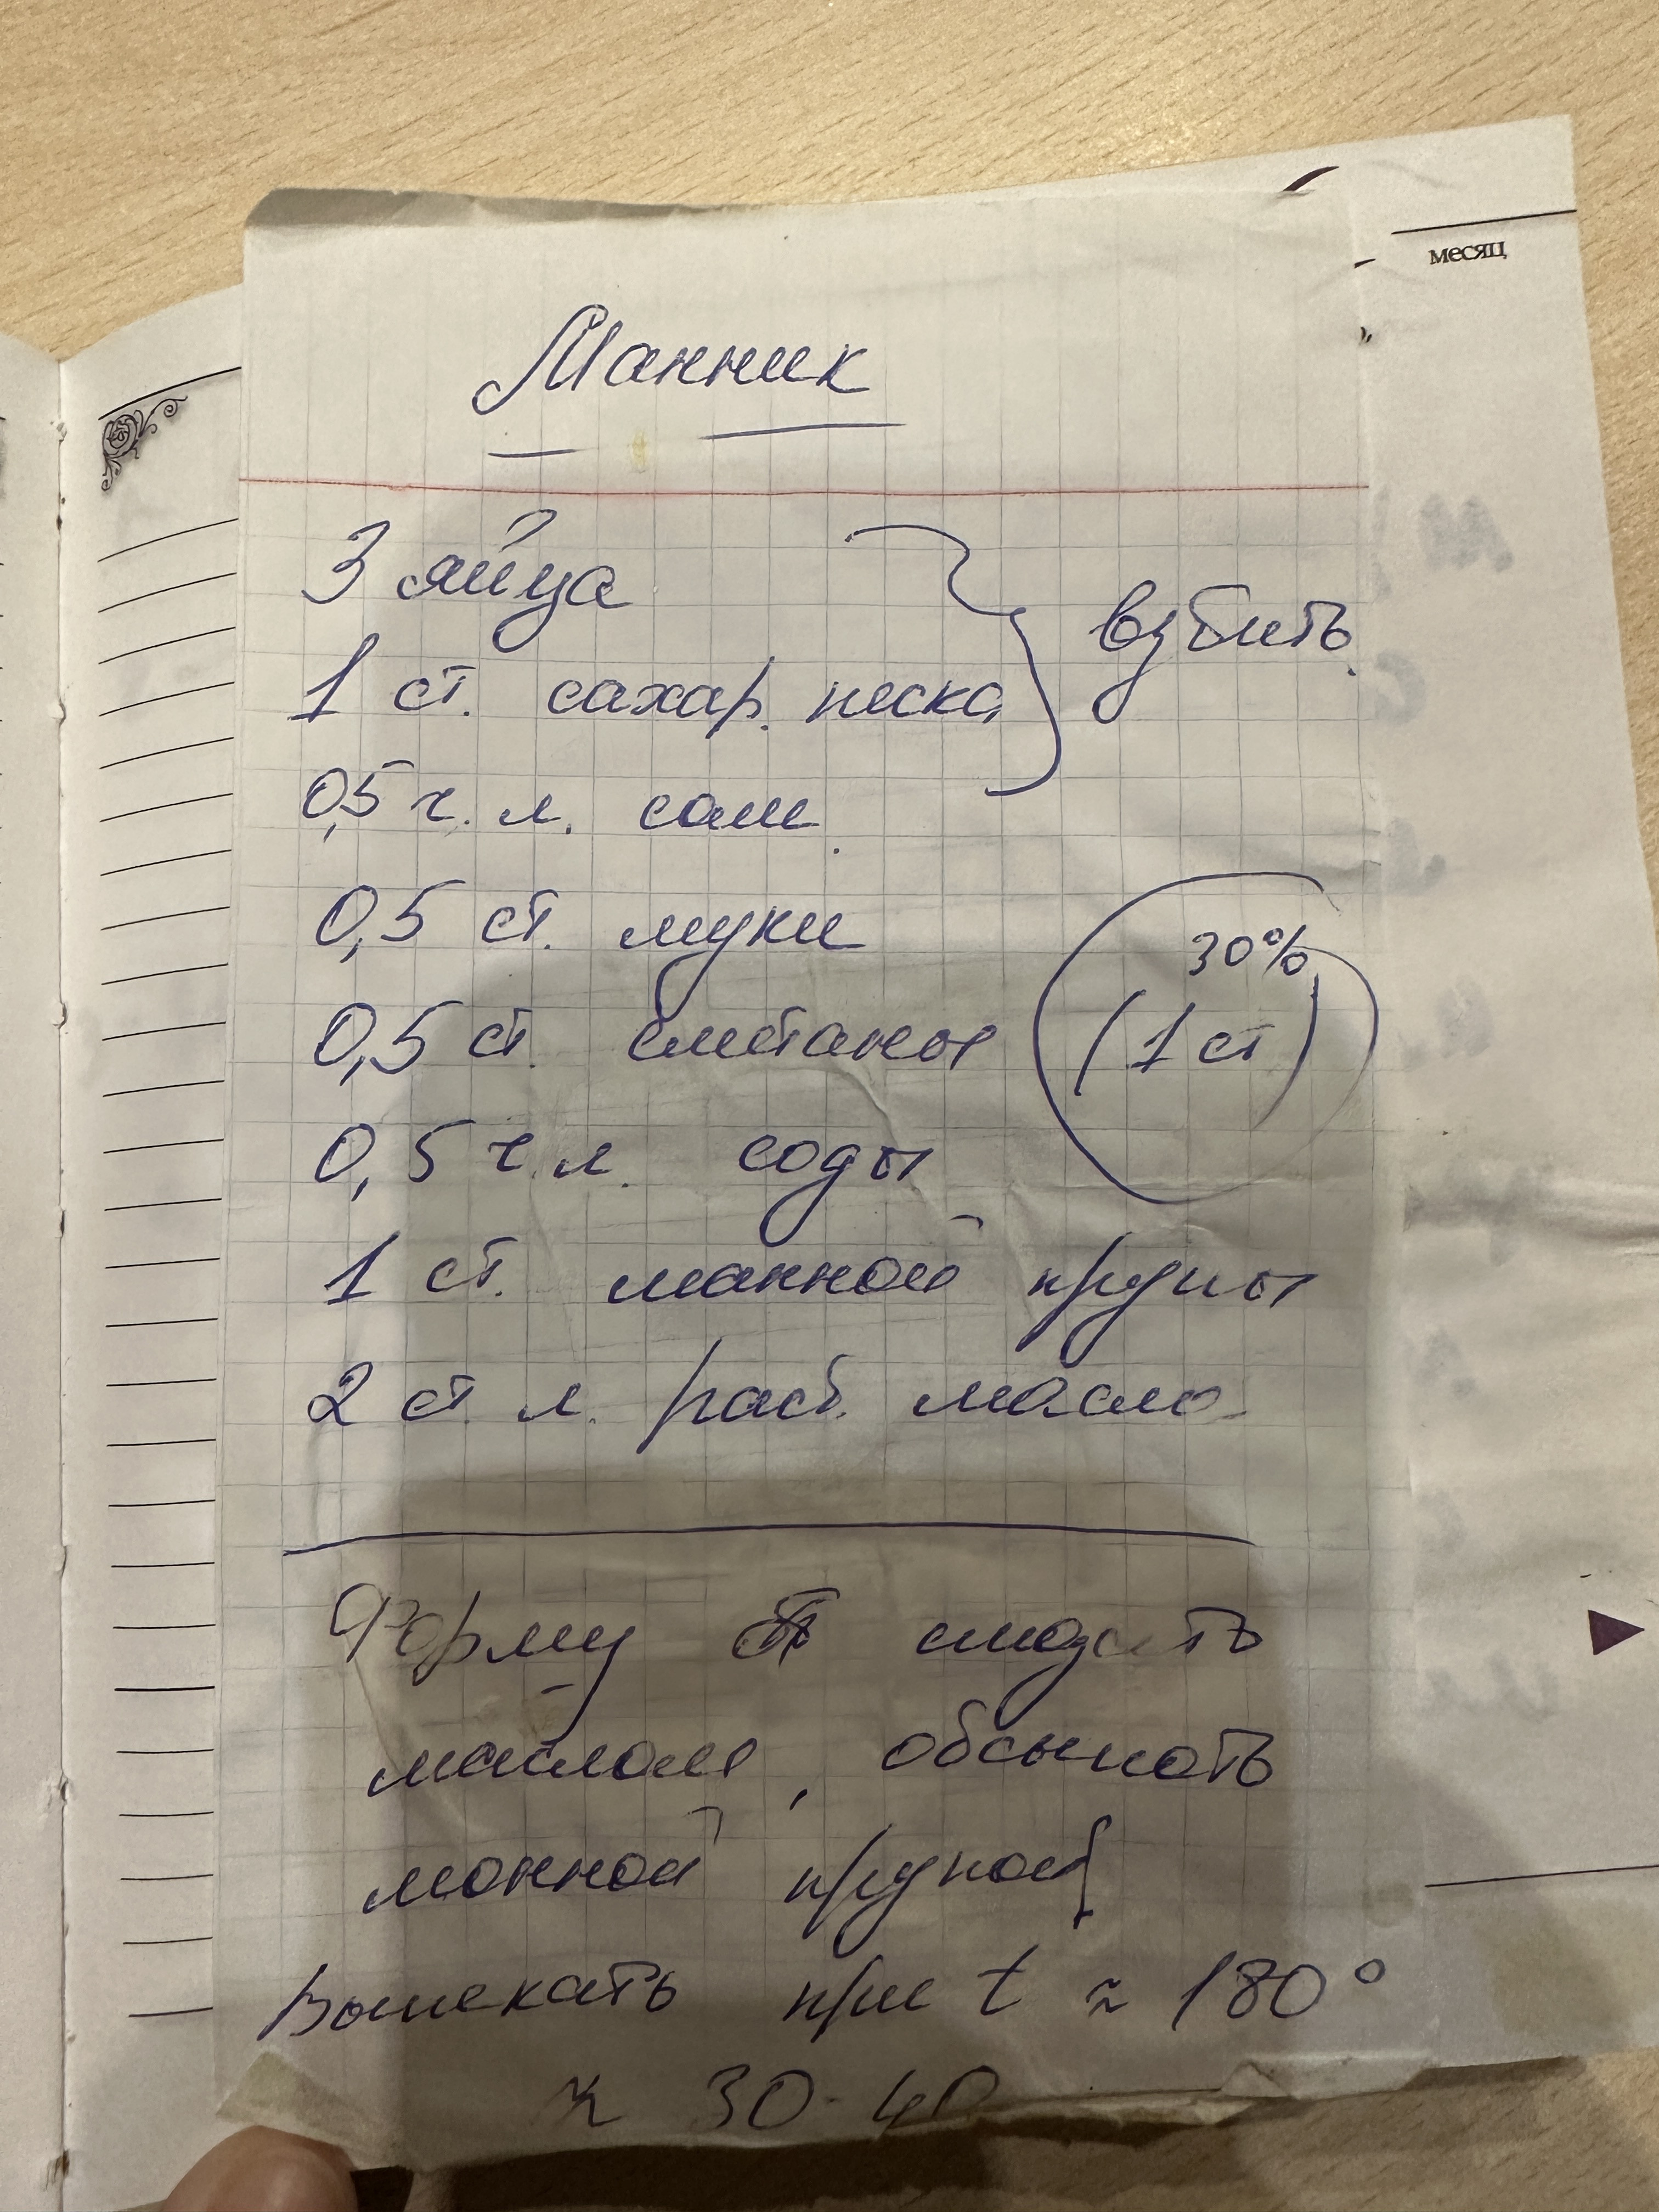 месяц
Манник
3 яйца
1 ст. сахар. песка
взбить
0,5 ч. л. соли
0,5 ст. муки
30%
0,5 ст. сметаны (1 ст)
0,5 ч. л. соды
1 ст. манной крупы
2 ст. л. раст. масла
Форму смазать
маслом, обсыпать
манной крупой
Выпекать при t ≈ 180°
≈ 30-40